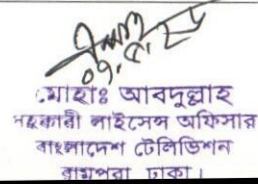 ০৭.৫.২৮
মোহাঃ আবদুল্লাহ
সহকারী লাইসেন্স অফিসার
বাংলাদেশ টেলিভিশন
রামপুরা ঢাকা।